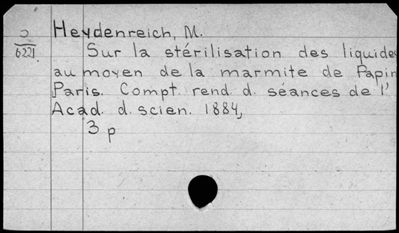 2 Heydenreich, M.
6221 Sur la stérilisation des liquides
au moyen de la marmite de Papin
Paris. Compt. rend d. séances de l'
Acad. d. scien. 1884,
3 p